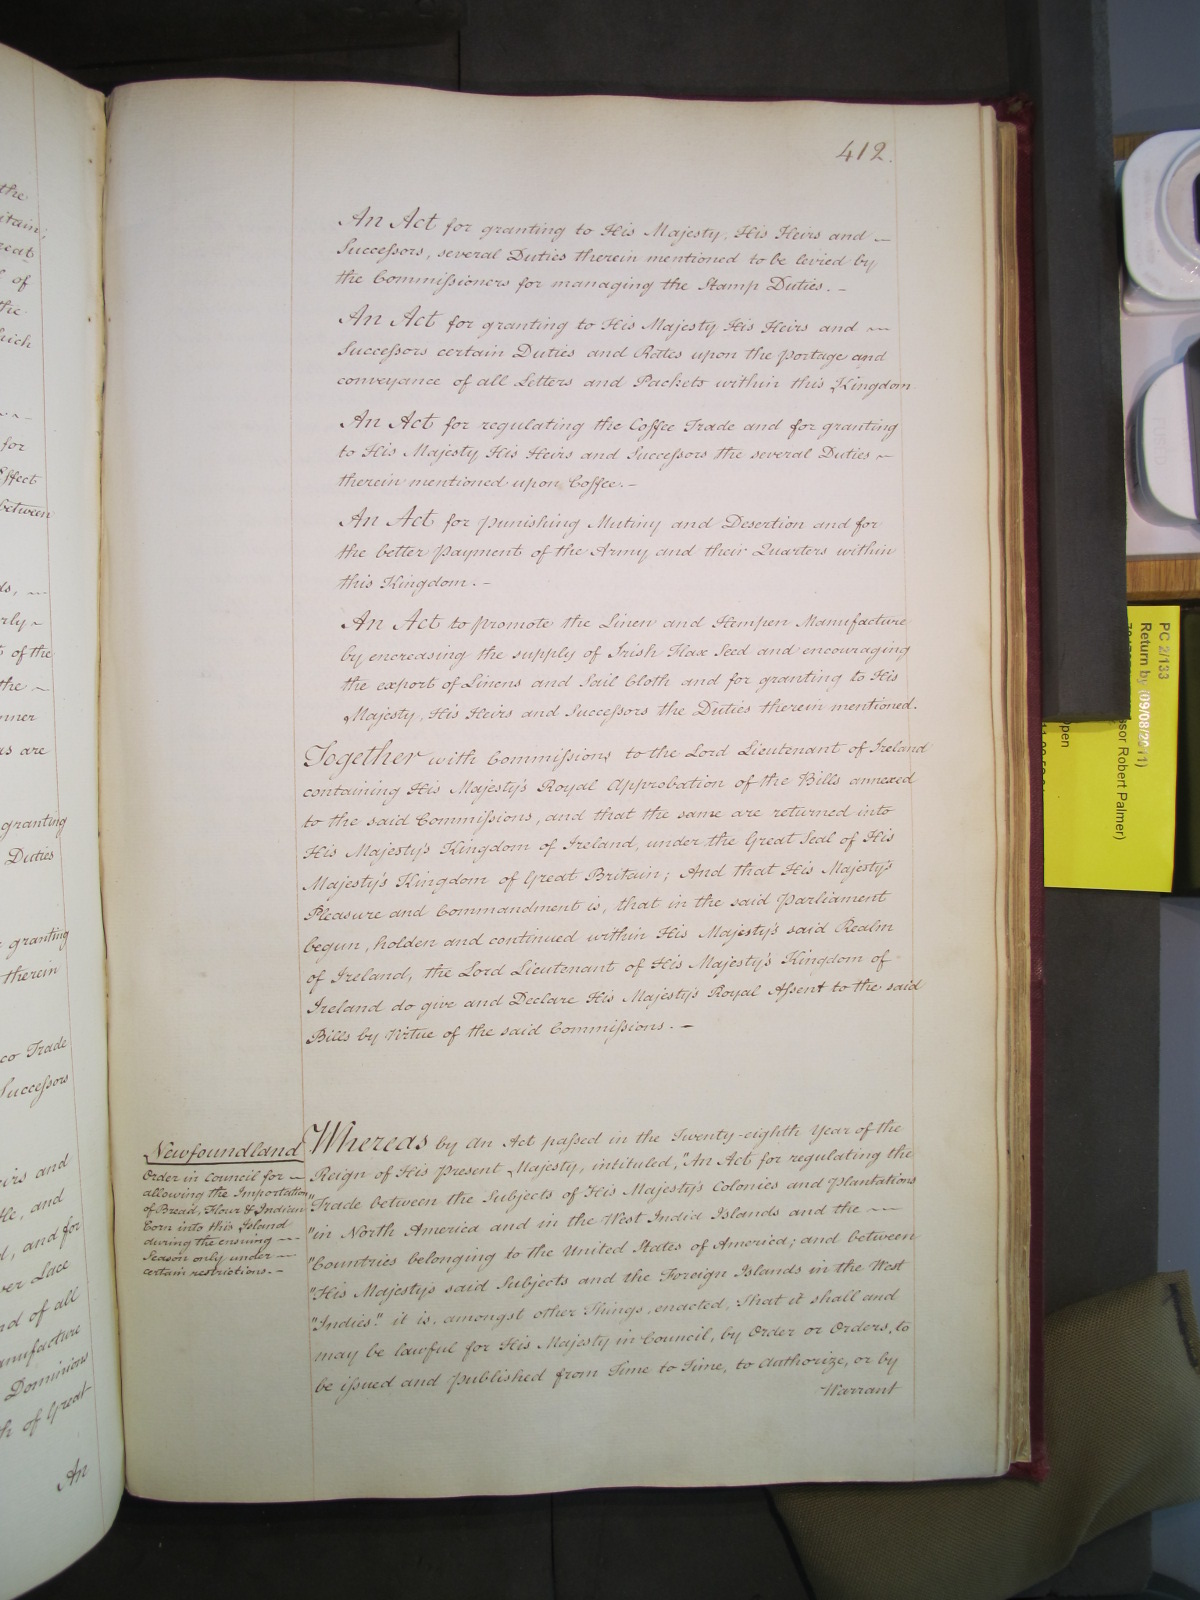 412.
An Act for granting to His Majesty, His Heirs and
Successors, several Duties therein mentioned to be levied by
the Commissioners for managing the Stamp Duties.
An Act for granting to His Majesty His Heirs and
Successors certain Duties and Rates upon the portage and
conveyance of all Letters and Packets within this Kingdom
An Act for regulating the Coffee Trade and for granting
to His Majesty His Heirs and Successors the several Duties
therein mentioned upon Coffee.
An Act for punishing Mutiny and Desertion and for
the better payment of the Army and their Quarters within
this Kingdom.
An Act to promote the Linen and Hempen Manufacture
by encreasing the supply of Irish Flax Seed and encouraging
the export of Linens and Sail Cloth and for granting to His
Majesty, His Heirs and Successors the Duties therein mentioned.
Together with Commissions to the Lord Lieutenant of Ireland
containing His Majesty's Royal Approbation of the Bills annexed
to the said Commissions, and that the same are returned into
His Majesty's Kingdom of Ireland, under the Great Seal of His
Majesty's Kingdom of Great Britain; And that His Majesty's
Pleasure and Commandment is, that in the said Parliament
begun, holden and continued within His Majesty's said Realm
of Ireland, the Lord Lieutenant of His Majesty's Kingdom of
Ireland do give and Declare His Majesty's Royal Assent to the said
Bills by Virtue of the said Commissions.
Newfoundland
Order in Council for
allowing the Importation
of Bread, Flour & Indian
Corn into this Island
during the ensuing
Season only under
certain restrictions.
Whereas by an Act passed in the Twenty-eighth Year of the
Reign of His present Majesty, intituled, "An Act for regulating the
"Trade between the Subjects of His Majesty's Colonies and Plantations
"in North America and in the West India Islands and the
"Countries belonging to the United States of America; and between
"His Majesty's said Subjects and the Foreign Islands in the West
"Indies." it is, amongst other Things, enacted, That it shall and
may be lawful for His Majesty in Council, by Order or Orders, to
be issued and published from Time to Time, to authorize, or by
Warrant
the
of
for
Effect
between
of the
the
are
granting
Duties
granting
therein
Trade
Successors
and
and
and for
Lace
of all
Dominions
of Great
An
PC 2/133
Return by (09/08/2011)
Robert Palmer)